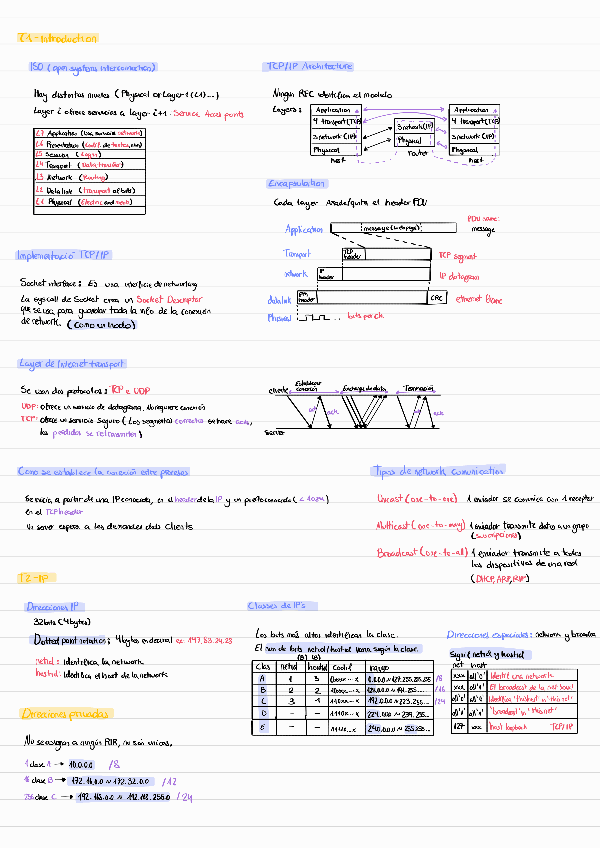 T1-Introduction
ISO (open systems interconnection)
Hay distintos niveles (Physical or Layer 1 (L1)...)
Layer i ofrece servicios a Layer i+1. Service Access points
L7 Application (Use services network)
L6 Presentation
L5 Session (Login)
L4 Transport (Data transfer)
L3 Network (Routing)
L2 Data link (Transport of bits)
L1 Physical
TCP/IP Architecture
Ningún RFC identifica el modelo
Layers:
Application
4 Transport (TCP)
3 network (IP)
Physical
host
3 network (IP)
Physical
router
Application
4 Transport (TCP)
3 network (IP)
Physical
host
Encapsulation
Cada layer añade/quita el header PDU
PDU name:
Application
message (webpage)
message
Transport
TCP header
TCP segment
network
IP header
IP datagram
data link
Eth. header
CRC
ethernet frame
Physical
bits
Implementació TCP/IP
Socket interface: Es una interficie de networking
La syscall de Socket crea un Socket Descriptor
que se usa para guardar toda la info de la conexión
de network. (como un inodo)
Layer de Internet transport
Se usan dos protocolos: TCP e UDP
UDP: ofrece un servicio de datagrama. No requiere conexión
TCP: ofrece un servicio seguro (Los segmentos correctos se hace acks,
los perdidos se retransmiten)
cliente
Establecer conexión
Exchange de data
Terminación
ack
ack
ack
server
Como se establece la conexión entre procesos
Se inicia a partir de una IP conocida, en el header de la IP y un puerto conocido (< 1024)
en el TCP header
Un server espera a las demandas dels clients
Tipos de network comunication
Unicast (one-to-one) 1 enviador se comunica con 1 receptor
Multicast (one-to-many) 1 enviador transmite datos a un grupo
(suscripciones)
Broadcast (one-to-all) 1 enviador transmite a todos
los dispositivos de una red
(DHCP, ARP, RIP)
T2-IP
Direcciones IP
32 bits (4 bytes)
Dotted point notation: 4 bytes en decimal ex: 147.83.24.28
netid: identifica la network
hostid: identifica el host de la network
Classes de IP's
Los bits más altos identifican la clase.
El num de bits netid/hostid varia según la clase.
(B) (B)
Clas netid hostid Codif rango
A 1 3 0xxx···x 0.0.0.0 ~ 127.255.255.255 /8
B 2 2 10xx···x /16
C 3 1 110x···x /24
D - - 1110x···x
E - - 1111x···x
Direcciones especiales: network y broadcas
Signif netid y hostid
net host
xxx all '0' Identif una network
xxx all '1' El broadcast de la net
all '0' all '0'
all '1' all '1'
127 xxx host loopback TCP/IP
Direcciones privadas
No se asignan a ningún RIR, no son únicas.
1 clase A → 10.0.0.0 /8
16 clase B → 172.16.0.0 ~ 172.32.0.0 /12
256 clase C → 192.168.0.0 ~ 192.168.255.0 /24